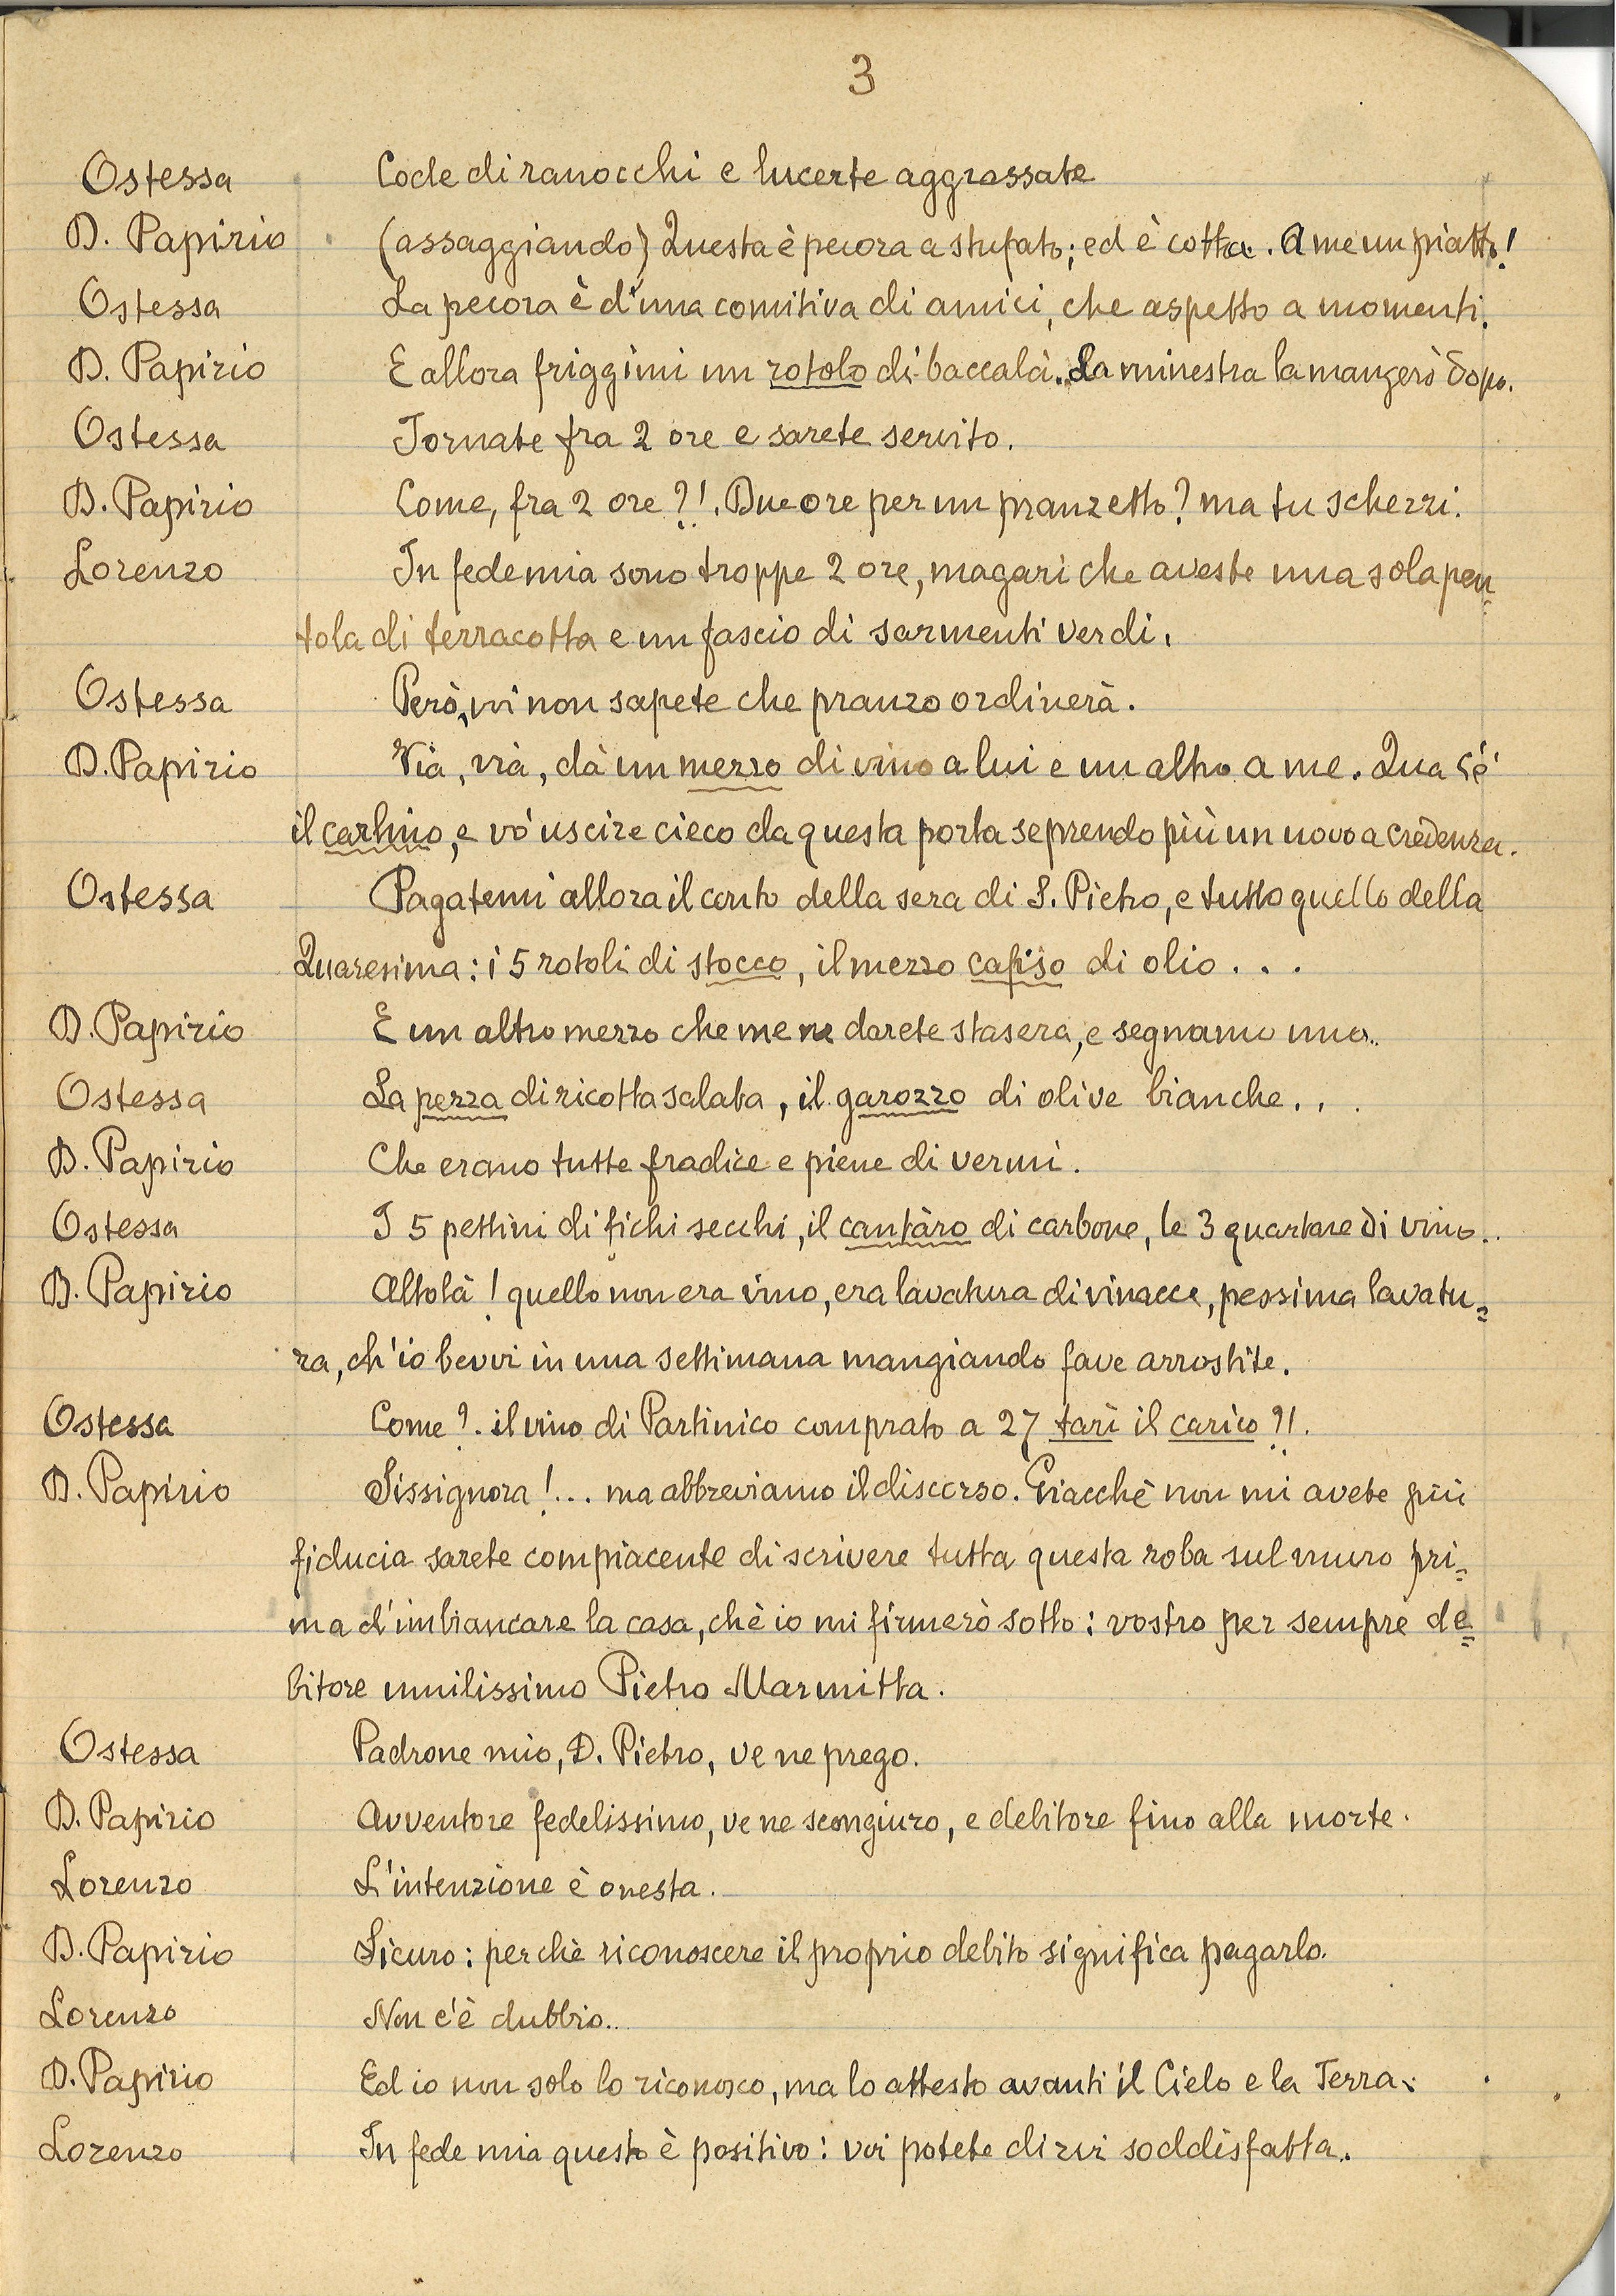 3
Ostessa Code di ranocchi e lucerte aggrassate
D. Papirio (assaggiando) Questa è pecora a stufato; ed è cotta. A me un piatto!
Ostessa La pecora è d'una comitiva di amici, che aspetto a momenti.
D. Papirio E allora friggimi un rotolo di baccalà. La minestra la mangerò dopo.
Ostessa Tornate fra 2 ore e sarete servito.
D. Papirio Come, fra 2 ore?!. Due ore per un pranzetto? ma tu scherzi.
Lorenzo In fede mia sono troppe 2 ore, magari che aveste una sola pen=
tola di terracotta e un fascio di sarmenti verdi.
Ostessa Però, voi non sapete che pranzo ordinerà.
D. Papirio Via, via, dà un mezzo di vino a lui e un altro a me. Qua c'è
il carlino, e vo' uscire cieco da questa porta se prendo più un uovo a credenza.
Ostessa Pagatemi allora il conto della sera di S. Pietro, e tutto quello della
Quaresima: i 5 rotoli di stocco, il mezzo cafiso di olio...
D. Papirio E un altro mezzo che me ne darete stasera, e segnamo uno..
Ostessa La pezza di ricotta salata, il garozzo di olive bianche...
D. Papirio Che erano tutte fradice e piene di vermi.
Ostessa I 5 pettini di fichi secchi, il cantàro di carbone, le 3 quartare di vino..
D. Papirio Altolà! quello non era vino, era lavatura di vinacce, pessima lavatu=
ra, ch'io bevvi in una settimana mangiando fave arrostite.
Ostessa Come?. il vino di Partinico comprato a 27 tarì il carico?!.
D. Papirio Sissignora!... ma abbreviamo il discorso. Giacchè non mi avete più
fiducia sarete compiacente di scrivere tutta questa roba sul muro pri=
ma d'imbiancare la casa, chè io mi firmerò sotto: vostro per sempre de=
bitore umilissimo Pietro Marmitta.
Ostessa Padrone mio, D. Pietro, ve ne prego.
D. Papirio Avventore fedelissimo, ve ne scongiuro, e debitore fino alla morte.
Lorenzo L'intenzione è onesta.
D. Papirio Sicuro: perchè riconoscere il proprio debito significa pagarlo.
Lorenzo Non c'è dubbio..
D. Papirio Ed io non solo lo riconosco, ma lo attesto avanti il Cielo e la Terra.
Lorenzo In fede mia questo è positivo: voi potete dirvi soddisfatta.